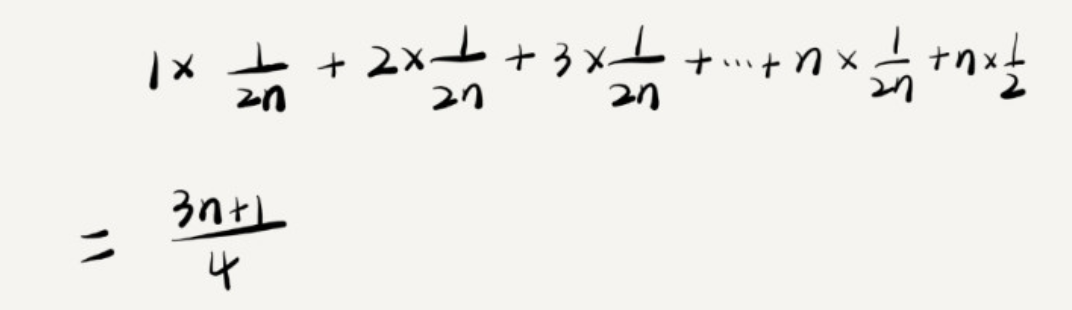 1 × 1/2n + 2 × 1/2n + 3 × 1/2n + ··· + n × 1/2n + n × 1/2
= 3n+1/4